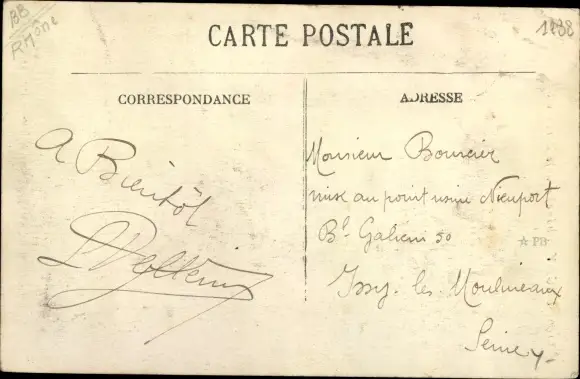 BB
Rhône
1238
CARTE POSTALE
CORRESPONDANCE
ADRESSE
A Bientôt
Monsieur Bourcier
mise au point usine Nieuport
Bd Galieni 50
☆ PB
Issy-les Moulineaux
Seine